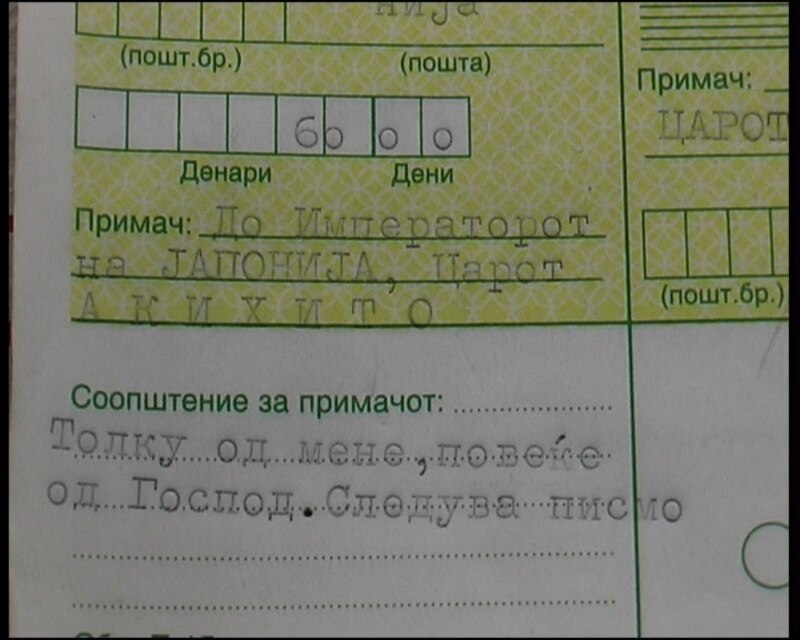 нија
(пошт.бр.) (пошта)
Примач:
ЦАРОТ
бо о о
Денари Дени
Примач: До Императорот
на ЈАПОНИЈА, Царот
А К И Х И Т О
(пошт.бр.)
Соопштение за примачот:
Толку од мене, повеќе
од Господ. Следува писмо